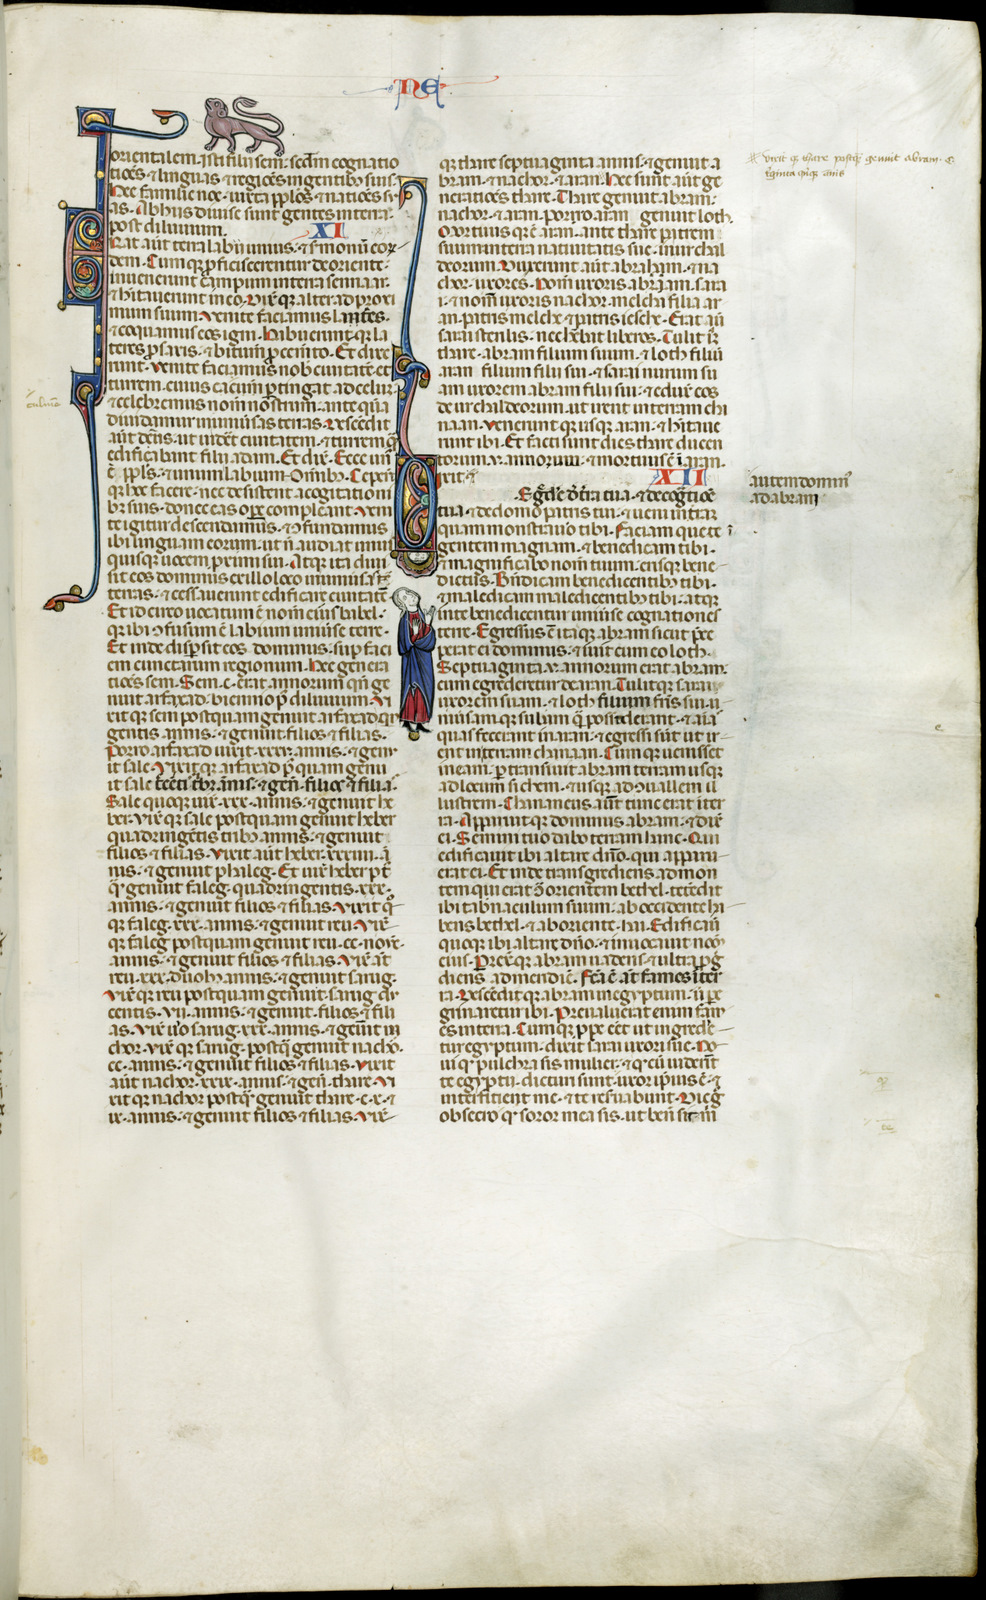 NE
orientalem. Isti filii sem. scdm cognatio
tiões ⁊ linguas ⁊ regiões in gentibꝰ suis.
Hec familie noe. iuxta pplos ⁊ natiões su
as. Ab hiis divise sunt gentes in terra
post diluuium. XI
Erat aūt terra labii unius. ⁊ sermonū eor
dem. Cumqꝫ proficiscerentur de oriente.
inuenerunt campum in terra sennaar.
⁊ hītauerunt in eo. Dixitqꝫ alter ad proxi
mum suum. Venite faciamus lateres.
⁊ coquamus eos igni. Habueruntqꝫ la
teres pro saxis. ⁊ bitumē pro cemento. Et dixe
runt. Venite faciamus nob ciuitatē et
turrem. cuius cacumē ptingat ad celum.
⁊ celebremus nomē nostrum. ante quā
diuidamur in uniuersas terras. Descēdit
aūt dēns. ut uidēt ciuitatem. ⁊ turremqꝫ
edificabant filii adam. Et dix. Ecce unꝰ
ē ppls. ⁊ unum labium omibꝫ. Ceperūt
qꝫ hec facere. nec desistent a cogitationi
bꝫ suis. donec eas ope compleant. Veni
te igitur descendamus. ⁊ ꝯfundamus
ibi linguam eorum. ut n̄ audiat unus
quisqꝫ uocem pximi sui. Atqꝫ ita diui
sit eos dominus ex illo loco in uniuersas
terras. ⁊ cessauerunt edificare ciuitatē.
Et idcirco uocatum ē nomē eius babel.
qꝫ ibi ꝯfusum ē labium uniuerse terre.
Et inde dispersit eos dominus. sup faci
em cunctarum regionum. Hee genera
tiões sem. Sem. c. erat annorum qñ ge
nuit arfaxad. biennio pꝰ diluuium. Vi
xitqꝫ sem postquam genuit arfaxad qn
gentis annis. ⁊ genuit filios ⁊ filias.
Porro arfaxad uixit. xxxv. annis. ⁊ genu
it sale. Vixitqꝫ arfaxad pꝰquam genu
it sale trecētis tribꝫ annis. ⁊ gen. filios ⁊ filias.
Sale quoqꝫ uix. xxx. annis. ⁊ genuit he
ber. Vixitqꝫ sale postquam genuit heber
quadringētis tribꝫ annis. ⁊ genuit
filios ⁊ filias. Vixit aūt heber. xxxiiii. an
nis. ⁊ genuit phaleg. Et uix heber pꝰt
qꝫ genuit faleg. quadringentis. xxx.
annis. ⁊ genuit filios ⁊ filias. Vixit qꝫ
qꝫ faleg. xxx. annis. ⁊ genuit reu. Vixit
qꝫ faleg postquam genuit reu. cc. nouē.
annis. ⁊ genuit filios ⁊ filias. Vix at
reu. xxx. duobꝫ annis. ⁊ genuit sarug.
Vixitqꝫ reu postquam genuit sarug du
centis. vii. annis. ⁊ genuit. filios ⁊ fili
as. Vix ūo sarug. xxx. annis. ⁊ genuit na
chor. Vixitqꝫ sarug. postqꝫ genuit nachor.
cc. annis. ⁊ genuit filios ⁊ filias. Vixit
aūt nachor. xxix. annis. ⁊ gen. thare. Vi
xitqꝫ nachor postqꝫ genuit thare. c. x. ⁊
ix. annis. ⁊ genuit filios ⁊ filias. Vixit
qꝫ thare septuaginta annis. ⁊ genuit a
bram. ⁊ nachor. ⁊ aran. Hee sunt aūt ge
neratiões thare. Thare genuit abram.
nachor. ⁊ aran. Porro aran genuit loth.
Mortuus qꝫ ē aran. ante thare patrem
suum in terra natiuitatis sue. in ur chal
deorum. Duxerunt aūt abraham. ⁊ na
chor. uxores. Nom̄ uxoris abram. sara
i. ⁊ nom̄ uxoris nachor. melcha filia ar
an. patris melche ⁊ patris iesche. Erat aūt
sarai sterilis. nec hēbat liberos. Tulit itaqꝫ
thare. abram filium suum. ⁊ loth filiū
aran. filium filii sui. ⁊ sarai nurum su
am uxorem abram filii sui. ⁊ eduxit eos
de ur chaldeorum. ut irent in terram cha
naan. Veneruntqꝫ usqꝫ aran. ⁊ hītaue
runt ibi. Et facti sunt dies thare ducen
torum v. annorum. ⁊ mortuus ē ī aran.
Dixit XII
Egredere de terra tua. ⁊ de cogtiōe
tua. ⁊ de domo patris tui. ⁊ ueni in terrā
quam monstrauero tibi. Faciam que te ī
gentem magnam. ⁊ benedicam tibi.
⁊ magnificabo nom̄ tuum. erisqꝫ bene
dictus. Bn̄dicam benedicentibꝫ tibi.
⁊ maledicam maledicentibꝫ tibi. atqꝫ
in te benedicentur uniuerse cognationes
terre. Egressus ē itaqꝫ abram sicut prece
perat ei dominus. ⁊ iuit cum eo loth.
Septuaginta v. annorum erat abram.
cum egrederetur de aran. Tulitqꝫ sarai
uxorem suam. ⁊ loth filium fris sui. u
niuersamqꝫ subam q̄ possederant. ⁊ aīas
quas fecerant in aran. ⁊ egressi sūt ut ir
ent in terram chanaan. Cumqꝫ uenisset
in eam. ptransiuit abram terram usqꝫ
ad locum sichem. ⁊ usqꝫ ad ꝯuallem il
lustrem. Chananeus aūt tunc erat ī ter
ra. Apparuitqꝫ dominus abram. ⁊ dix
ei. Semini tuo dabo terram hanc. Qui
edificauit ibi altare dn̄o. qui apparu
erat ei. Et inde transgrediens ad mon
tem qui erat ꝯ orientem bethel. tetēdit
ibi tabnaculum suum. ab occidente ha
bens bethel. ⁊ ab oriente. hai. Edificauit
quoqꝫ ibi altare dn̄o. ⁊ inuocauit nom̄
eius. Prexitqꝫ abram uadens. ⁊ ultra pg
diens ad meridiē. Fcā ē at fames ī ter
ra. Descēditqꝫ abram in egyptum. ut pe
grinaretur ibi. Preualuerat enim fam
es in terra. Cumqꝫ ppe eēt ut ingrede
tur egyptum. dixit sarai uxori sue. No
ui qꝫ pulchra sis mulier. ⁊ qꝫ cū uiderīt
te egyptii. dicturi sunt. uxor ipsius ē. ⁊
interficient me. ⁊ te reseruabunt. Dic ergo
obsecro qꝫ soror mea sis. ut bene sit m̄
vixit qꝫ thare postqꝫ genuit abram. c.
triginta quinqꝫ annis
autem dominꝰ
ad abram
culmē